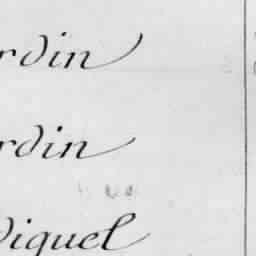 rdin
rdin
iquel